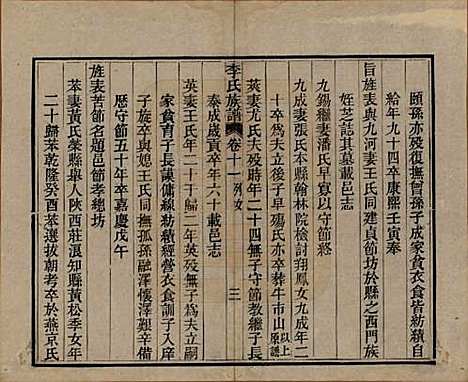 頤孫亦殁復撫曾孫子成家貧衣食皆紡績自
給年九十四卒康熙壬寅奉
旨旌表與九河妻王氏同建貞節坊於縣之西門族
姪芝誌其墓載邑志
九錫繼妻潘氏早寡以守節終
九成妻張氏本縣翰林院檢討翔鳳女九成年二
十卒為夫立後子早殤氏亦卒葬牛市山以上原譜
李氏族譜 卷十一 列女 三
英妻尤氏夫殁時年二十四無子守節教繼子長
泰成歲貢卒年六十載邑志
英妻王氏年二十于歸二年英殁無子為夫立嗣
家貧育子長謨傭線紡績經營衣食訓子入庠
子旋卒與媳王氏同撫孤孫融澤懷澤艱辛備
歷守節五十年卒嘉慶戊午
旌表苦節名題邑節孝總坊
苯妻黃氏榮縣舉人陝西莊浪知縣黃松季女年
二十歸苯乾隆癸酉苯選拔朝考卒於燕京氏